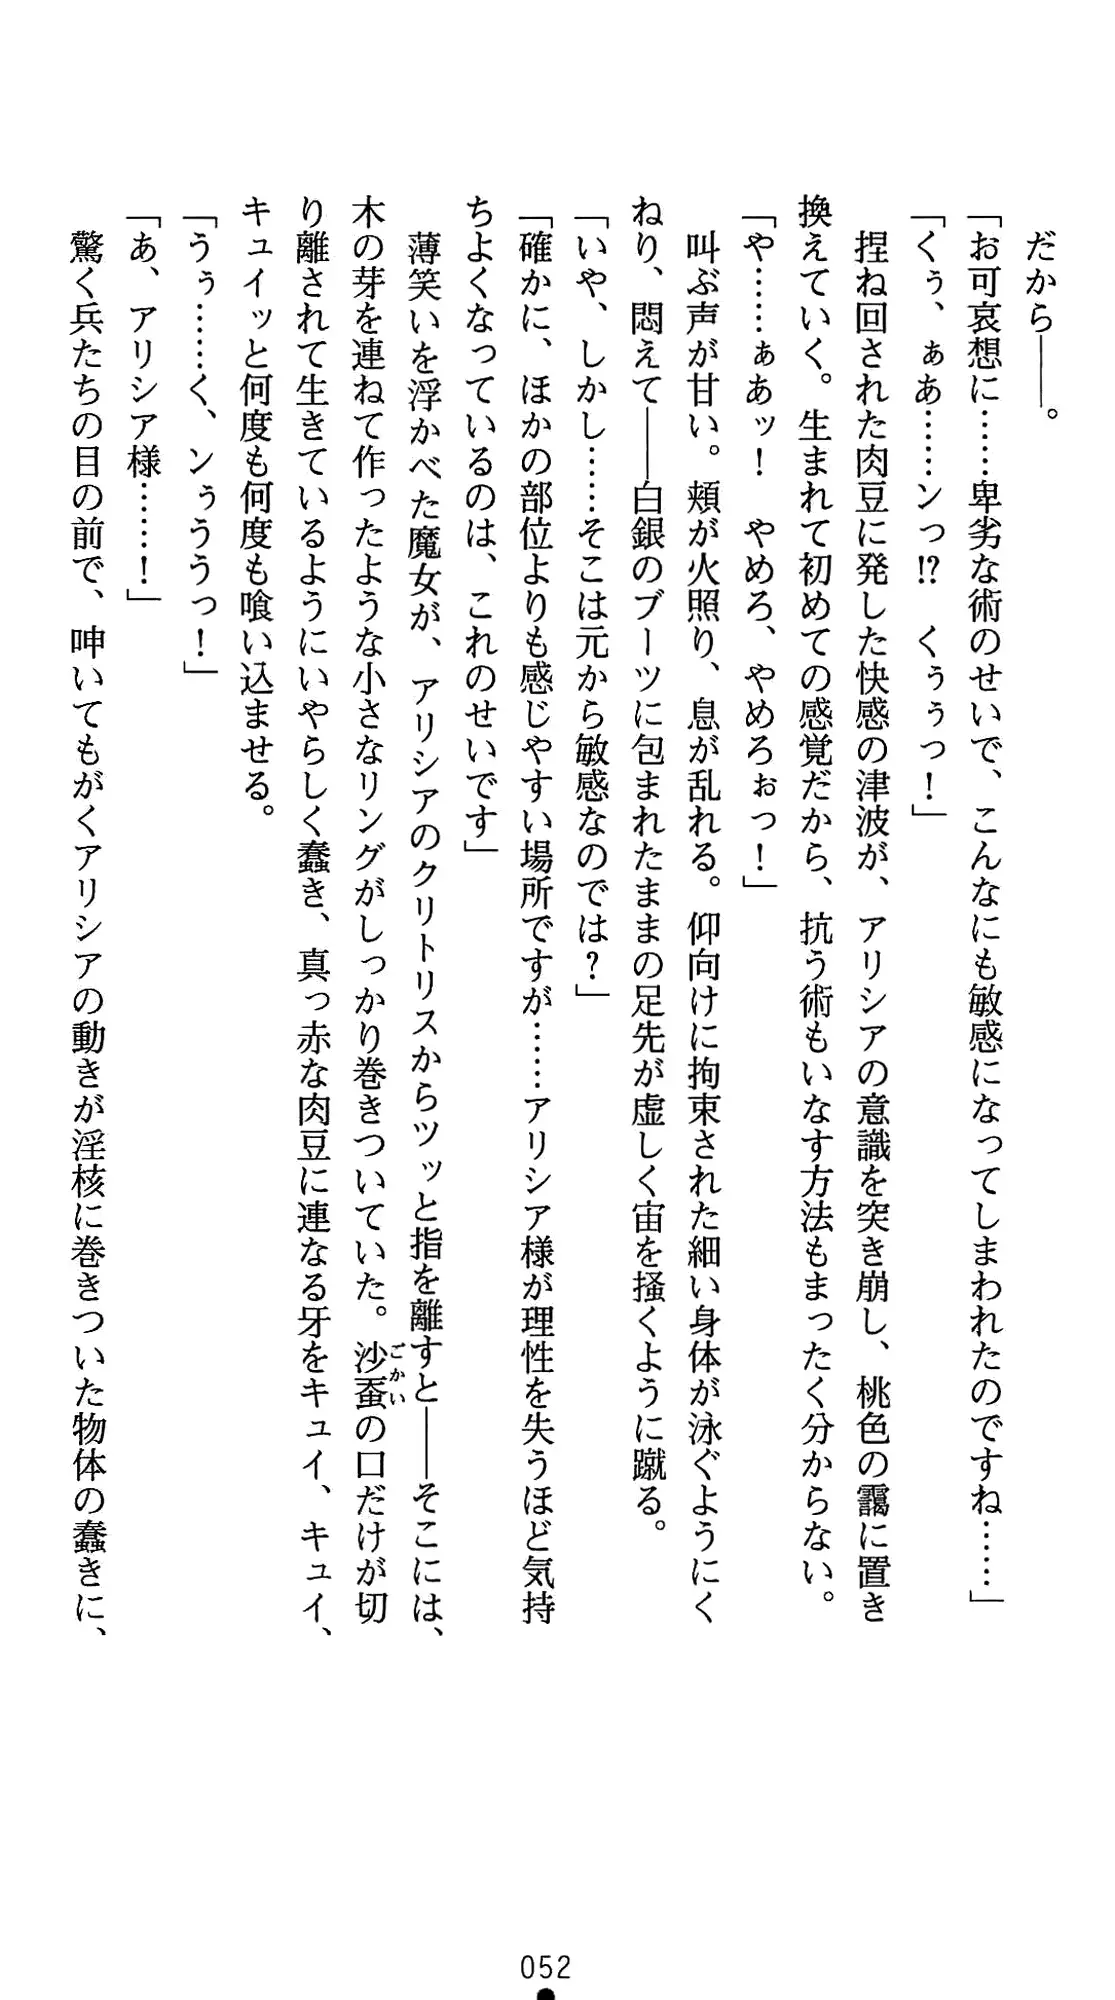 だから――。
「お可哀想に……卑劣な術のせいで、こんなにも敏感になってしまわれたのですね……」
「くぅ、ぁあ……ンっ!?　くぅぅっ！」
捏ね回された肉豆に発した快感の津波が、アリシアの意識を突き崩し、桃色の靄に置き
換えていく。生まれて初めての感覚だから、抗う術もいなす方法もまったく分からない。
「や……ぁあッ！　やめろ、やめろぉっ！」
叫ぶ声が甘い。頬が火照り、息が乱れる。仰向けに拘束された細い身体が泳ぐようにく
ねり、悶えて――白銀のブーツに包まれたままの足先が虚しく宙を掻くように蹴る。
「いや、しかし……そこは元から敏感なのでは？」
「確かに、ほかの部位よりも感じやすい場所ですが……アリシア様が理性を失うほど気持
ちよくなっているのは、これのせいです」
薄笑いを浮かべた魔女が、アリシアのクリトリスからツッと指を離すと――そこには、
木の芽を連ねて作ったような小さなリングがしっかり巻きついていた。沙蚕（ごかい）の口だけが切
り離されて生きているようにいやらしく蠢き、真っ赤な肉豆に連なる牙をキュイ、キュイ、
キュイッと何度も何度も喰い込ませる。
「うぅ……く、ンぅううっ！」
「あ、アリシア様……！」
驚く兵たちの目の前で、呻いてもがくアリシアの動きが淫核に巻きついた物体の蠢きに、
052